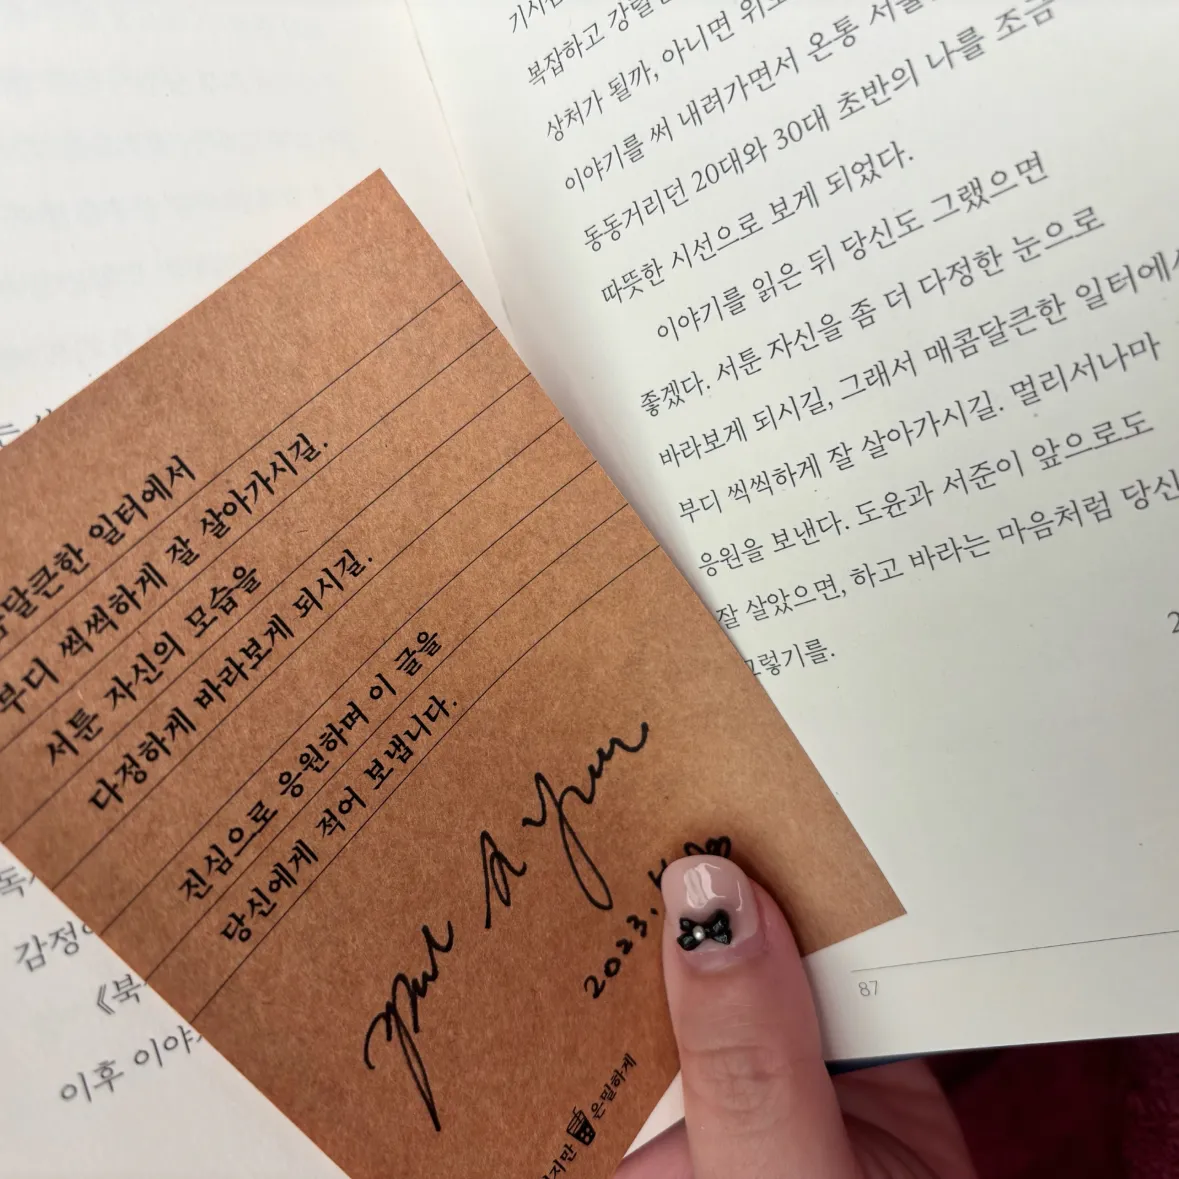 복잡하고
상처가 될까, 아니면
이야기를 써 내려가면서 온통
동동거리던 20대와 30대 초반의 나를 조금
따뜻한 시선으로 보게 되었다.
이야기를 읽은 뒤 당신도 그랬으면
좋겠다. 서툰 자신을 좀 더 다정한 눈으로
바라보게 되시길, 그래서 매콤달큰한 일터에서
부디 씩씩하게 잘 살아가시길. 멀리서나마
응원을 보낸다. 도윤과 서준이 앞으로도
잘 살았으면, 하고 바라는 마음처럼 당신
그렇기를.
87
달큰한 일터에서
부디 씩씩하게 잘 살아가시길.
서툰 자신의 모습을
다정하게 바라보게 되시길.
진심으로 응원하며 이 글을
당신에게 적어 보냅니다.
2023.
은밀하게
이후